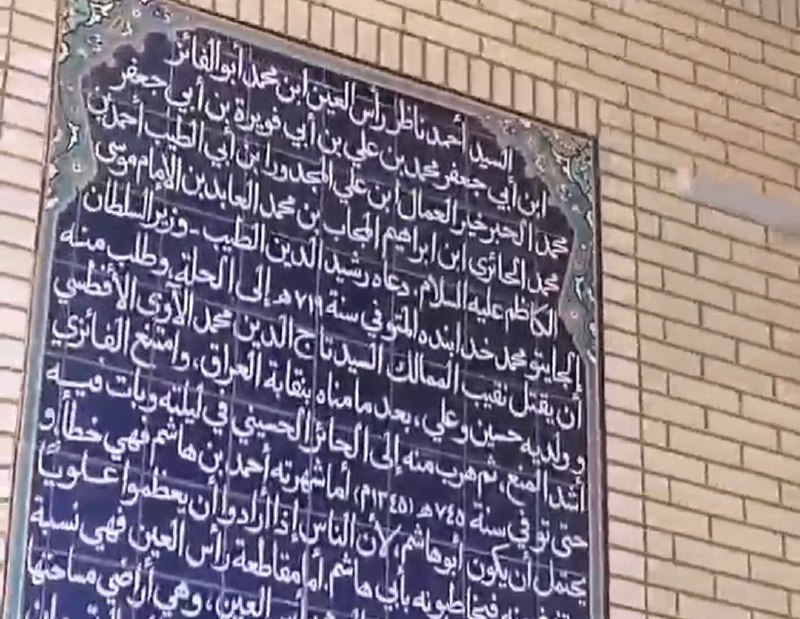 السيد أحمد ناظر رأس العين ابن محمد أبو الفائز
ابن أبي جعفر محمد بن علي بن أبي فويرة بن أبي جعفر
محمد الحبر خير العمال ابن علي المجدور ابن أبي الطيب أحمد بن
محمد الحائري ابن ابراهيم المجاب بن محمد العابد بن الإمام موسى
الكاظم عليه السلام. دعاه رشيد الدين الطيب - وزير السلطان
الجايتو محمد خدا بنده المتوفي سنة ٧١٩ هـ إلى الحلة، وطلب منه
أن يقتل نقيب الممالك السيد تاج الدين محمد الآوي الأفطسي
وولديه حسين وعلي، بعد ما مناه بنقابة العراق، وامتنع الفائزي
أشد المنع، ثم هرب منه إلى الحائر الحسيني في ليلته وبات فيه
حتى توفي سنة ٧٤٥ هـ (١٣٤٥م) أما شهرته أحمد بن هاشم فهي خطأ و
يحتمل أن يكون أبو هاشم، لأن الناس إذا أرادوا أن يعظموا علوياً
فيخاطبونه بأبي هاشم. أما مقاطعة رأس العين فهي نسبة
رأس العين، وهي أراضي مساحتها